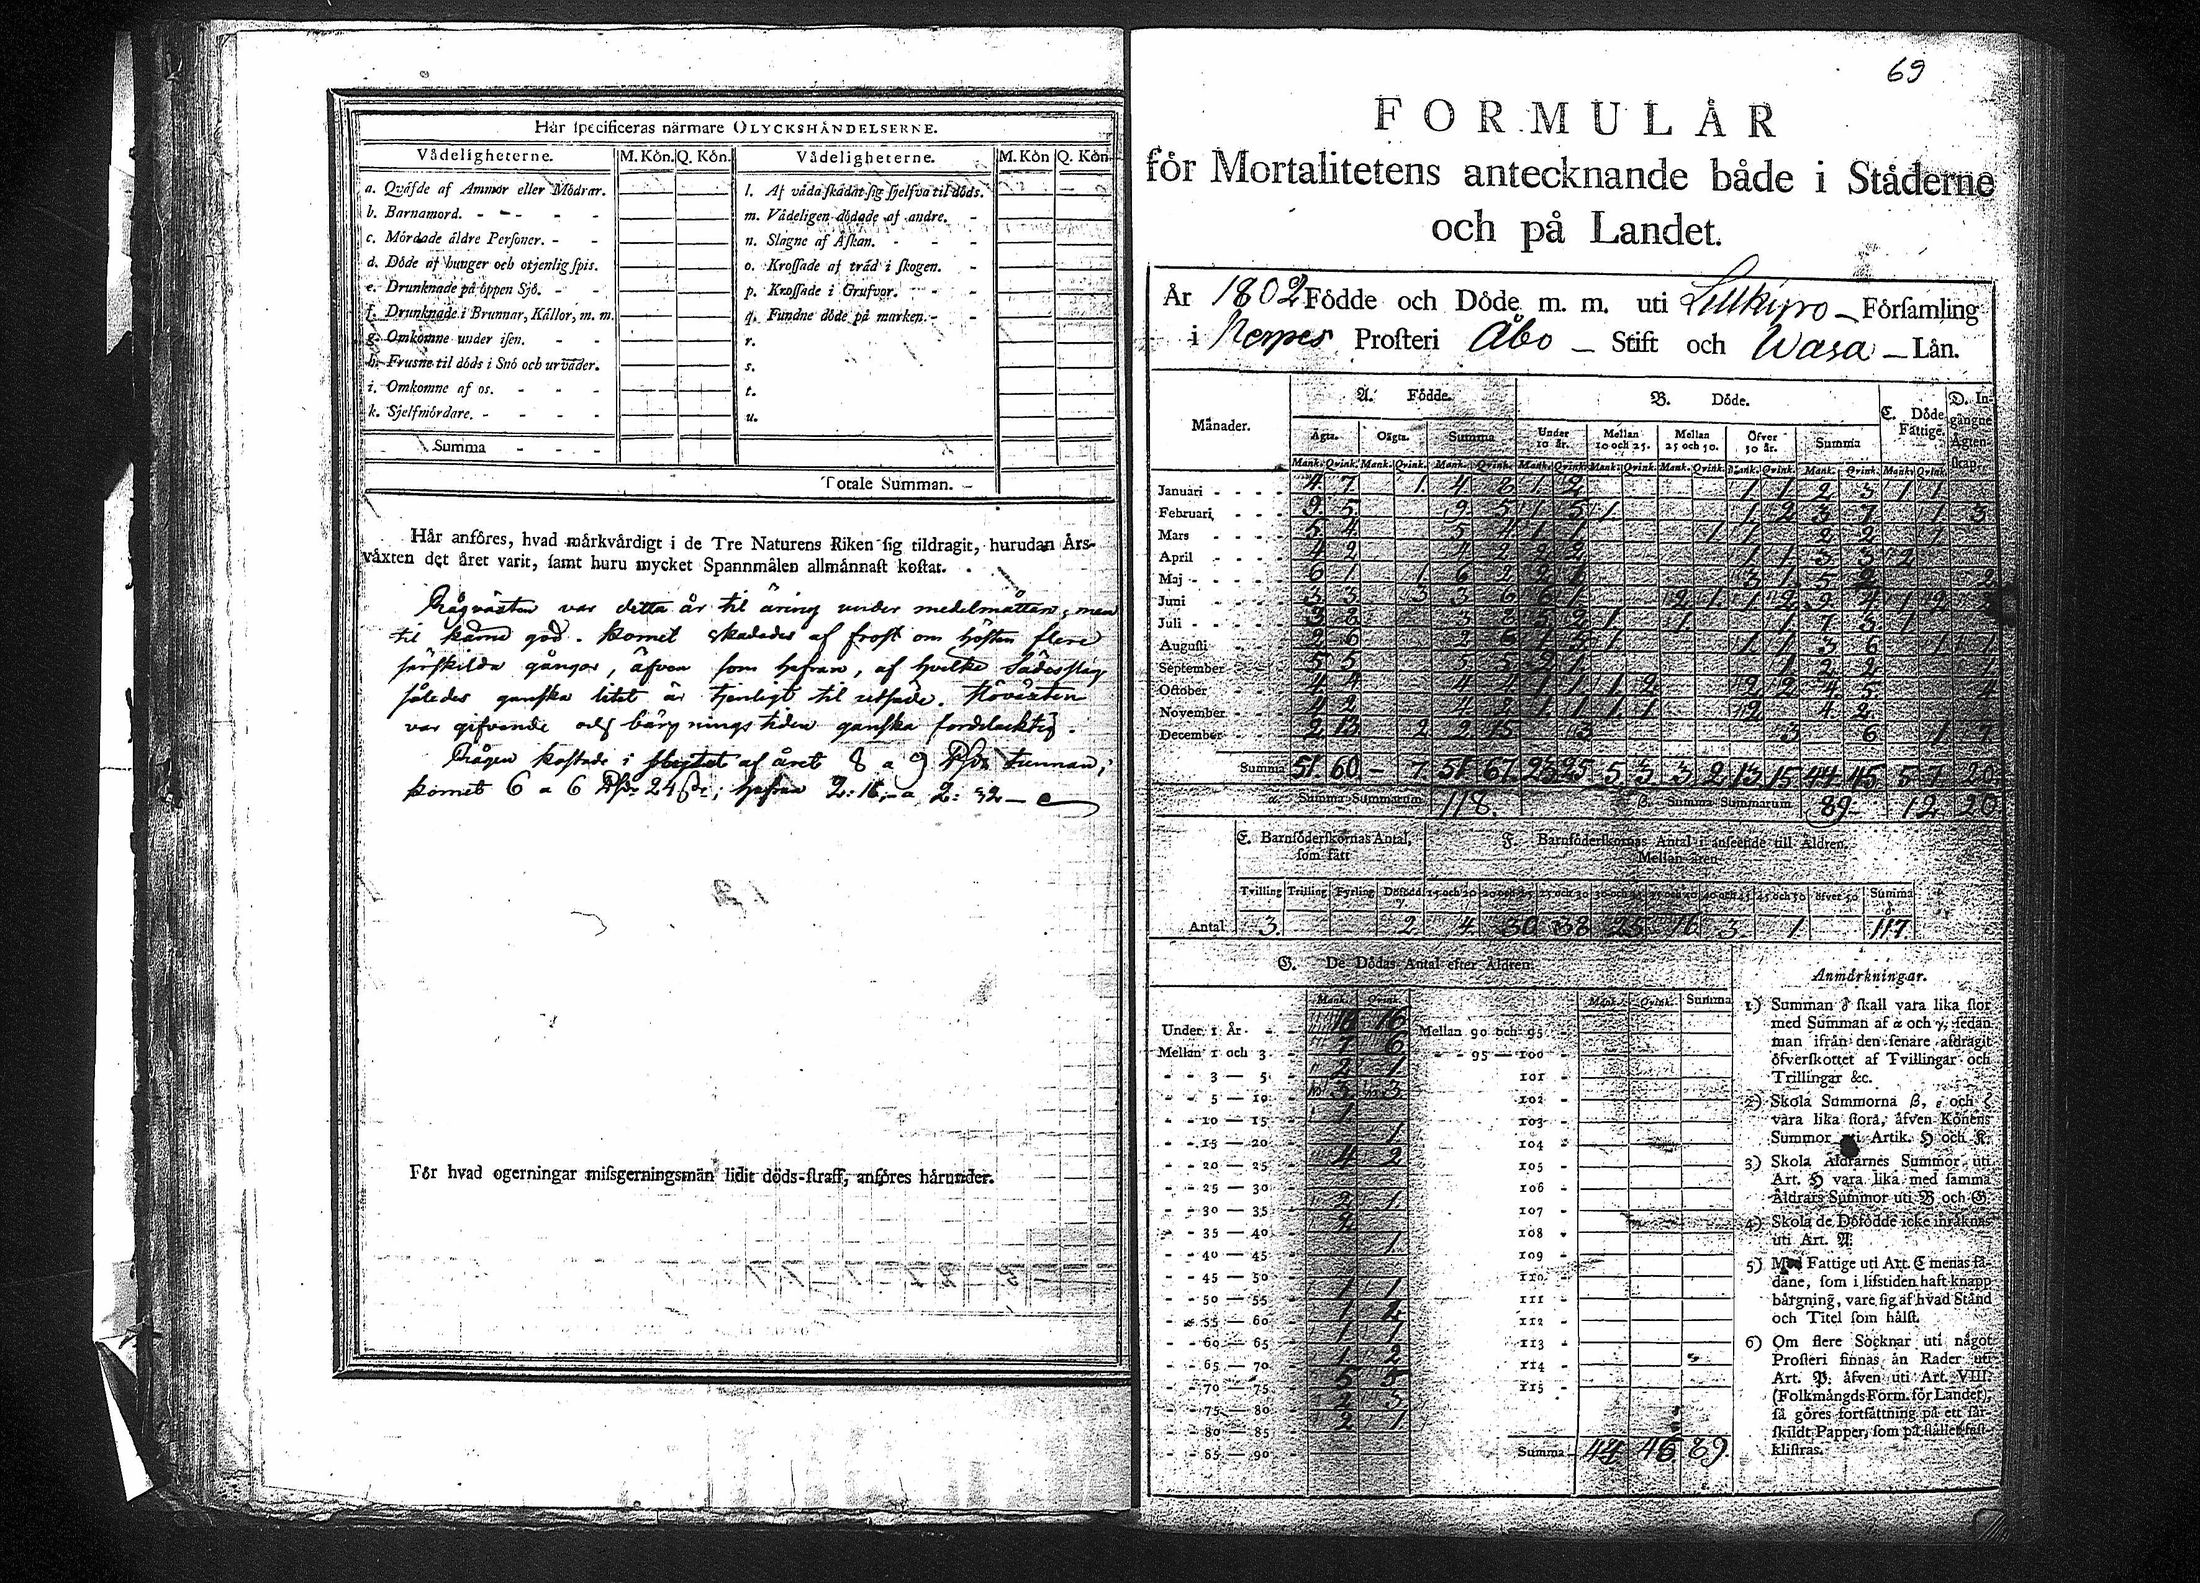 Hår specificeras närmare OLYCKSHÅNDELSERNE.
Vådeligheterne. M. Kôn. Q. Kôn. Vådeligheterne. M. Kôn Q. Kôn.
a. Qväfde af Ammor eller Môdrar.
b. Barnamord.
c. Môrdade äldre Perſoner.
d. Dôde af hunger och otjenlig ſpis.
e. Drunknade på ôppen Sjô.
f. Drunknade i Brunnar, Kållor, m. m.
g. Omkomne under iſen.
h. Frusne til dôds i Snô och urväder.
i. Omkomne af os.
k. Sjelfmôrdare.
Summa
l. Af våda ſkadat ſig ſjelfva til dôds.
m. Vådeligen dôdade af andre.
n. Slagne af Åſkan.
o. Kroſſade af träd i ſkogen.
p. Kroſſade i Grufvor.
q. Fundne dôde på marken.
r.
s.
t.
u.
Totale Summan.
Hår anfôres, hvad mårkvårdigt i de Tre Naturens Riken ſig tildragit, hurudan Års-
våxten det året varit, ſamt huru mycket Spannmålen allmånnaſt koſtat.
Rågväxten var detta år til äring under medelmåttan, men
til kärna god. Kornet skadades af frost om hösten flere
särskilda gångor, äfven som hafran, af hvilka Sädesslag
således ganska litet är tjenligt til utsäde. Höväxten
var gifvande och bärgningstiden ganska fordelacktig.
Rågen kostade i slutet af året 8 a 9 Rdr tunnan;
kornet 6 a 6 Rdr 24 s; hafran 2: 16 a 2: 32
Fôr hvad ogerningar miſsgerningsmän lidit dôds-ſtraff, anfôres hårunder.
69
FORMULÅR
fôr Mortalitetens antecknande både i Ståderne
och på Landet.
År 1802 Fôdde och Dôde m. m. uti Lillkyro Fôrſamling
i Nerpes Proſteri Åbo Stift och Wasa Lån.
Månader. A. Fôdde. B. Dôde. C. Dôde Fattige. D. Ingångne Ågtenſkap.
Ågta. Oågta. Summa Under 10 år. Mellan 10 och 25. Mellan 25 och 50. Öfver 50 år. Summa
Mank. Qvink. Mank. Qvink. Mank. Qvink. Mank. Qvink. Mank. Qvink. Mank. Qvink. Mank. Qvink. Mank. Qvink. Mank. Qvink.
Januari 4 7 1 4 8 1 2 1 1 2 3 1 1
Februari 9 5 9 5 1 5 1 1 2 3 7 1 3
Mars 5 4 5 4 1 1 1 1 2 2 1
April 4 2 4 2 2 2 1 1 3 3 2
Maj 6 1 1 6 2 2 1 3 1 5 2 2
Juni 3 3 3 3 6 6 1 2 1 1 2 9 4 1 2
Juli 3 8 3 8 5 2 1 1 1 7 3 1
Augusti 2 6 2 6 1 5 1 1 1 3 6 1 1
September 5 5 5 5 2 1 1 2 2 1
October 4 4 4 4 1 1 1 2 2 2 4 5 4
November 4 2 4 2 1 1 1 1 2 4 2
December 2 13 2 2 15 3 3 6 1 7
Summa 51 60 - 7 51 67 23 25 5 3 3 2 13 15 44 45 5 7 20
α. Summa Summarum 118. β. Summa Summarum 89 12 20
E. Barnfôderſkornas Antal, ſom fått
F. Barnfôderſkornas Antal i anſeende till Åldren,
Mellan åren
Tvilling Trilling Fyrling Dôfôdd 15 och 20 20 och 25 25 och 30 30 och 35 35 och 40 40 och 45 45 och 50 öfver 50 Summa
Antal 3. 2. 4. 30 38 25 16 3. 1. 117.
G. De Dôdas Antal efter Åldren.
Mank. Qvink. Mank. Qvink. Summa
Under 1 År 18 16 Mellan 90 och 95
Mellan 1 och 3 7 6 95 — 100
3 — 5 2 1 101
5 — 10 3 3 102
10 — 15 1 103
15 — 20 1 104
20 — 25 4 2 105
25 — 30 106
30 — 35 2 1 107
35 — 40 2 108
40 — 45 1 109
45 — 50 110
50 — 55 1 1 111
55 — 60 1 2 112
60 — 65 1 1 113
65 — 70 1 2 114
70 — 75 5 115
75 — 80 2 3
80 — 85 2 1
85 — 90 Summa 44 89.
Anmårkningar.
1) Summan δ ſkall vara lika ſtor
med Summan af α och γ, ſedan
man ifrån den ſenare afdragit
ôfverſkottet af Tvillingar och
Trillingar &c.
2) Skola Summorna β, ε och ζ
vara lika ſtora, åfven Kônens
Summor uti Artik. H och K.
3) Skola Åldrarnes Summor uti
Art. H vara lika med ſamma
Åldrars Summor uti B och G.
4) Skola de Dôfôdde icke inråknas
uti Art. A.
5) Med Fattige uti Art. C menas ſå-
dane, ſom i lifstiden haft knapp
bårgning, vare ſig af hvad Stånd
och Titel ſom hålſt.
6) Om flere Socknar uti något
Proſteri finnas än Rader uti
Art. P. åfven uti Art. VIII.
(Folkmångds Form. fôr Landet),
ſå gôres fortſåttning på ett ſår-
ſkildt Papper, ſom på ſtället faſt-
kliſtras.